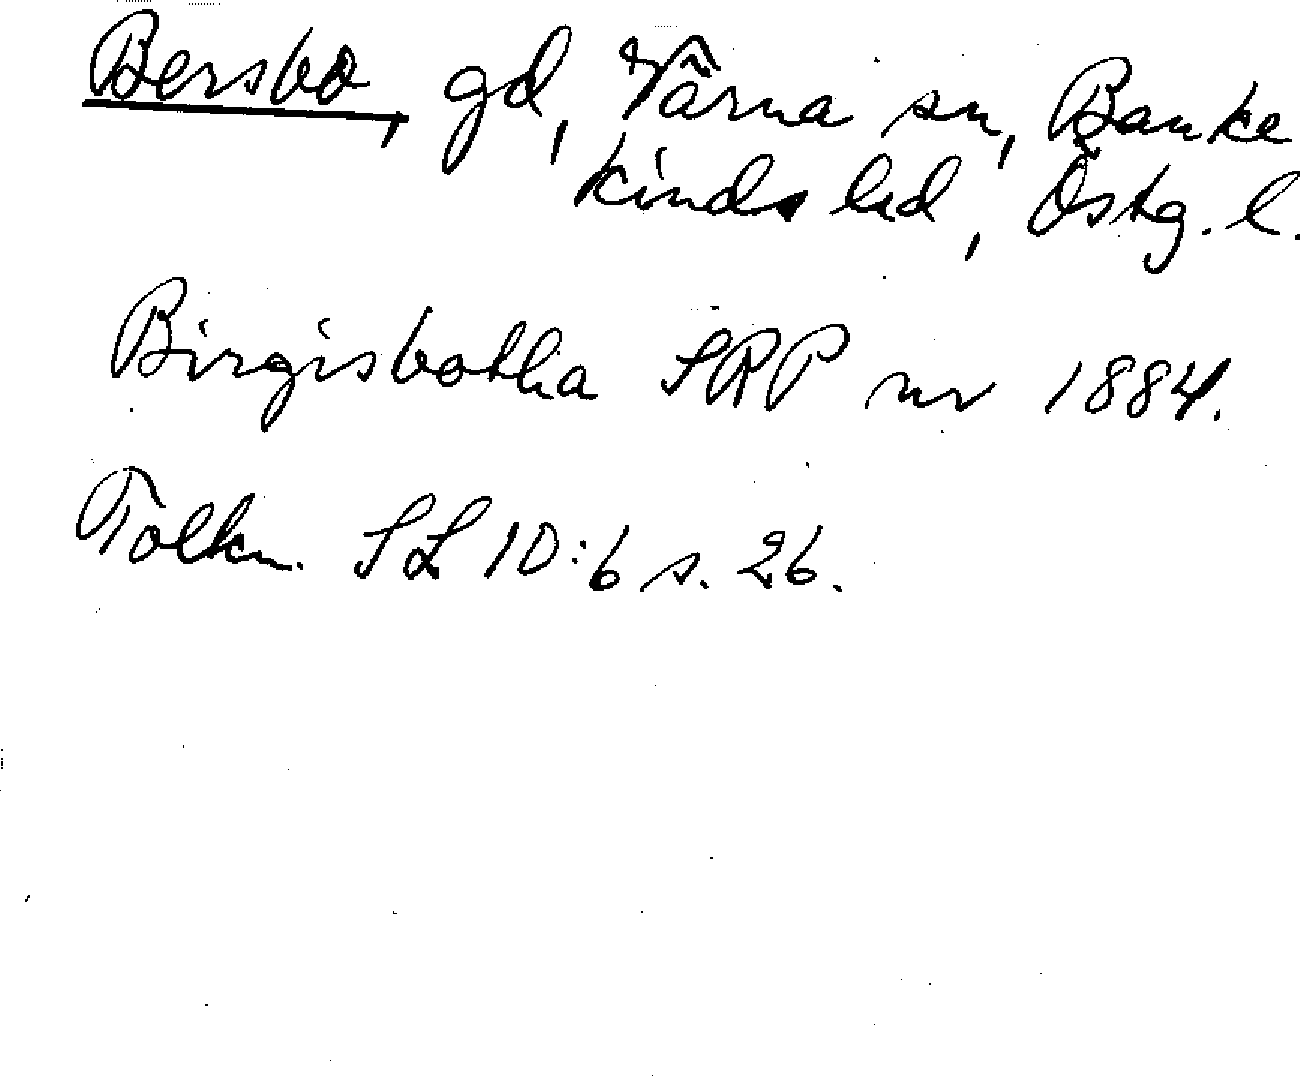 Bersbo, gd, Värna sn, Banke
kinds hd, Östg. l.
Birgisbotha SRP nr 1884.
Tolkn. SL 10:6 s. 26.